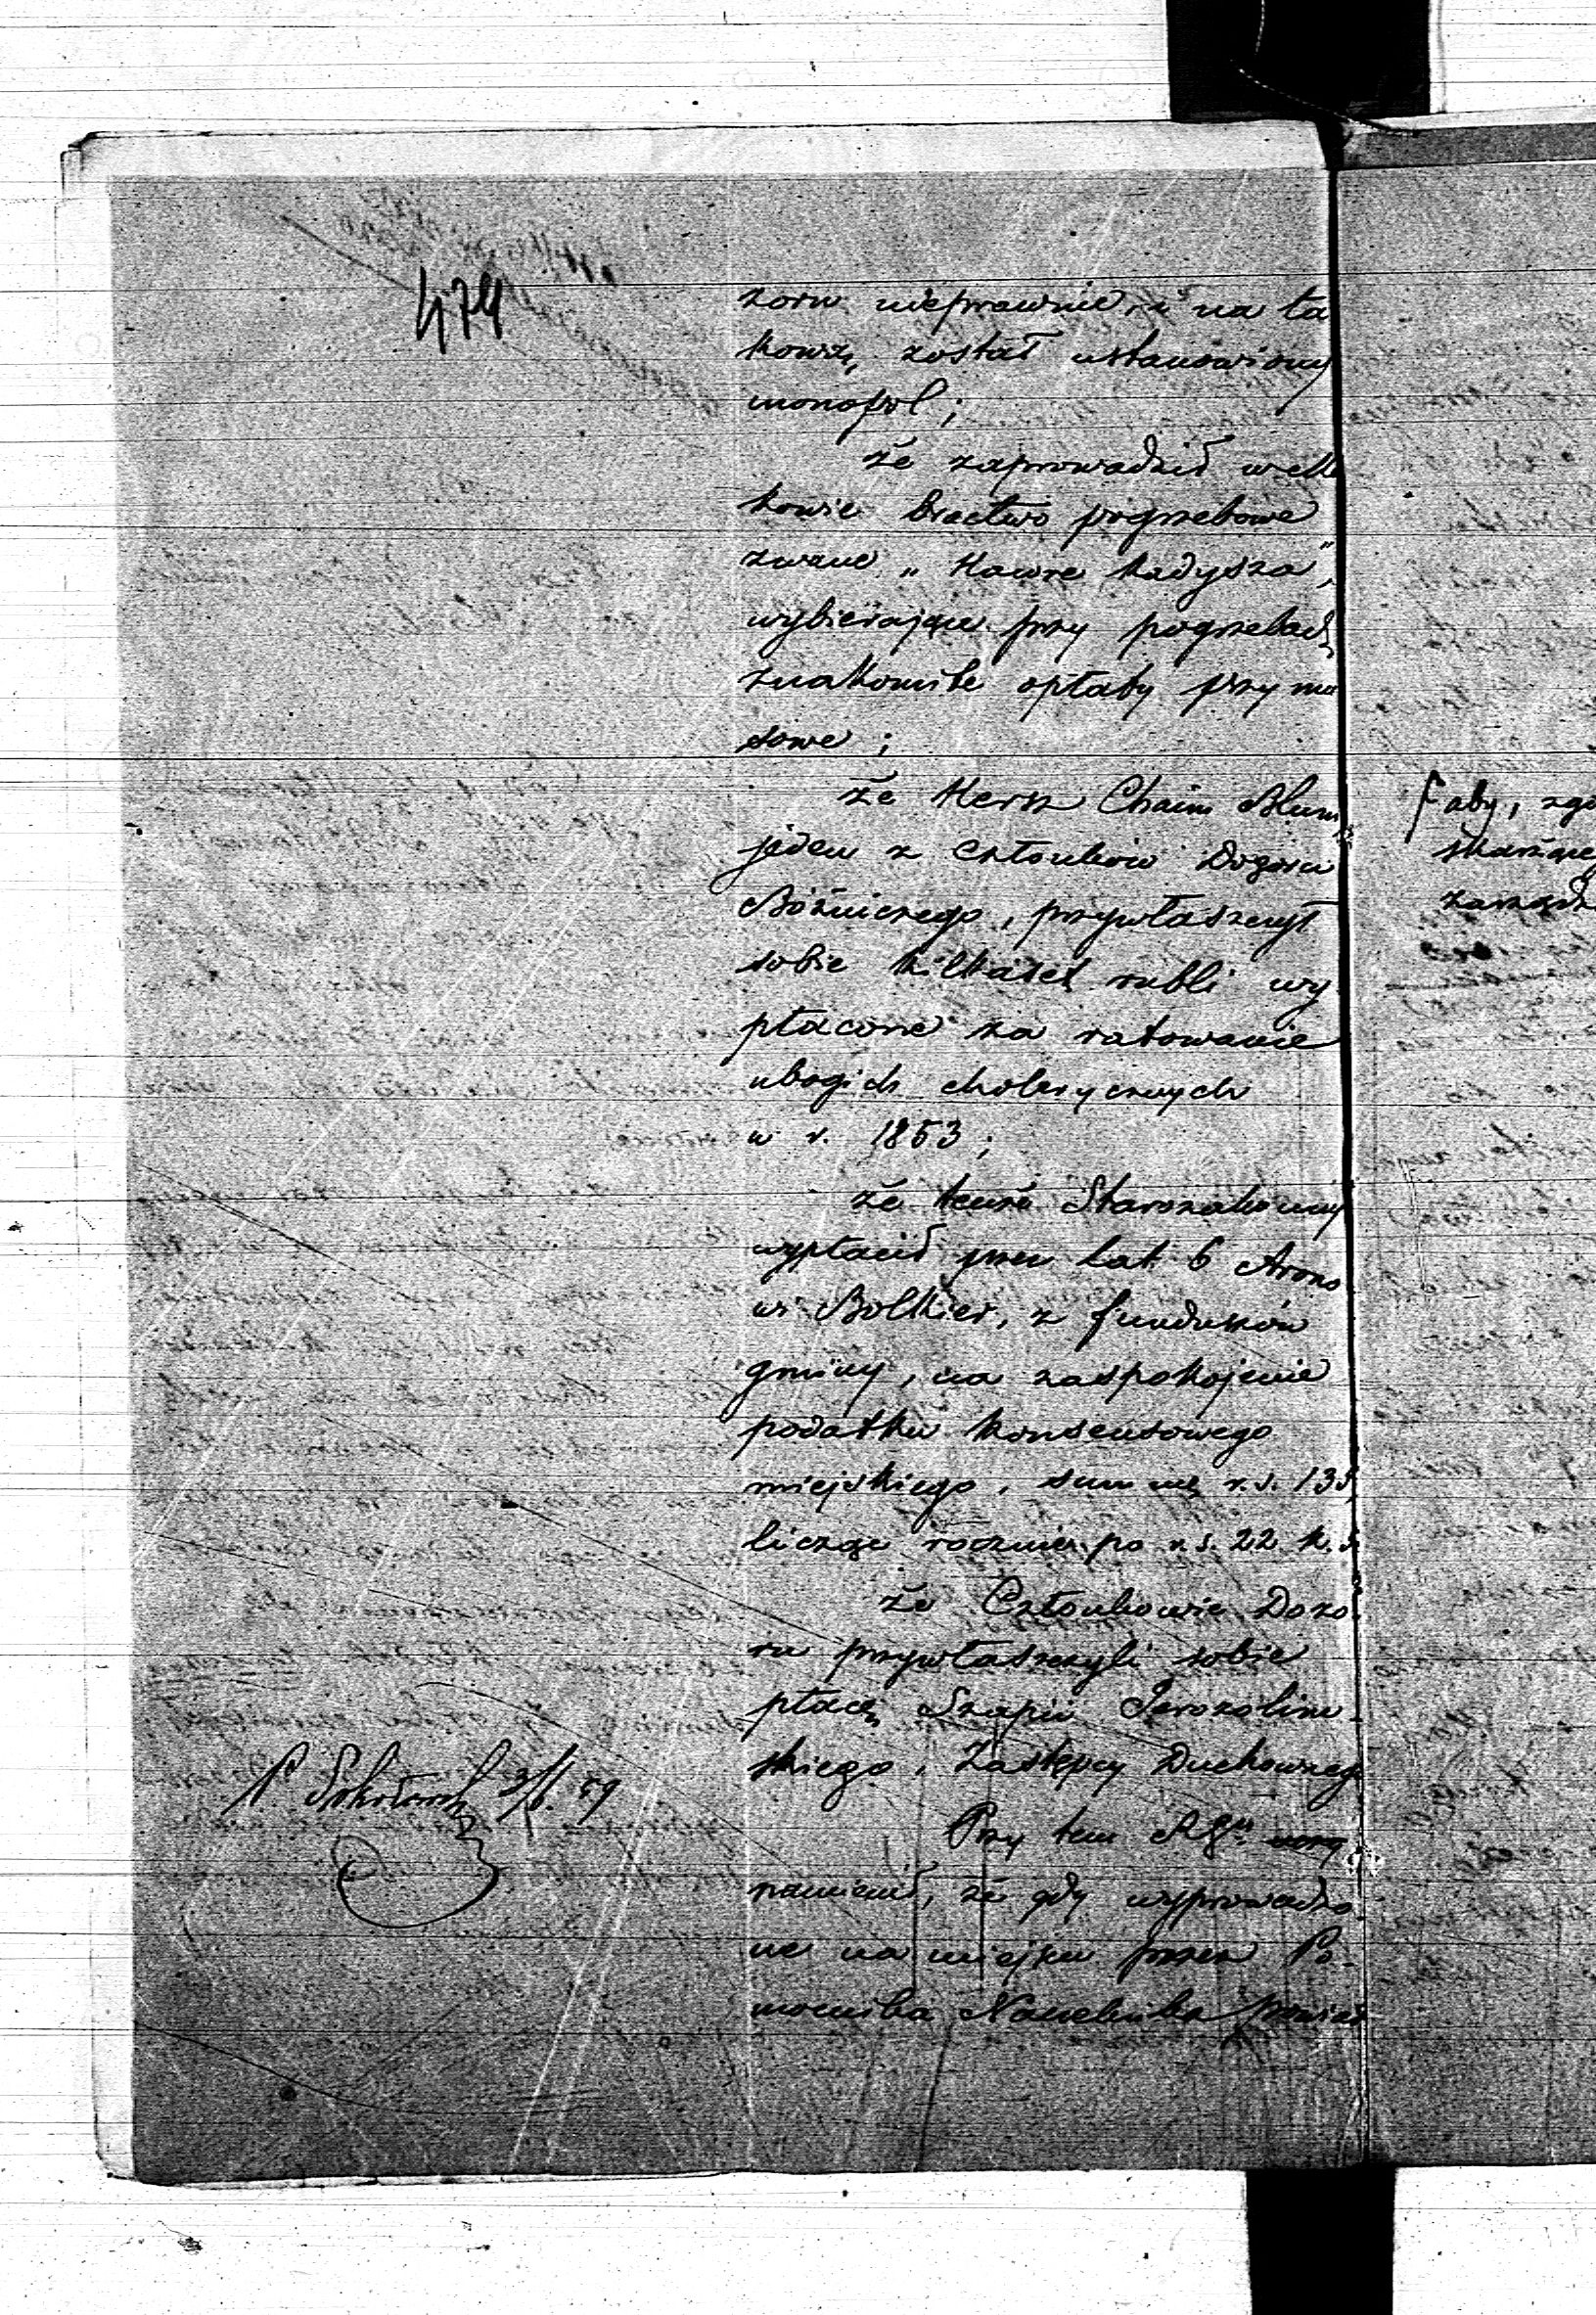 474
zoru nieprawnie, i na ta
kową, został ustanowiony
monopol;
że zaprowadzić
kowie bractwo pogrzebowe
zwane „Hawre Kadysza",
wybierające przy pogrzebach
znakomite opłaty przymu
sowe;
że Hersz Chaim Blum
jeden z członków Dozoru
Bóźniczego, przywłaszczył
sobie kilkaset rubli wy
płacone za ratowanie
ubogich cholerycznych
w r. 1853;
że tenże Starozakonny
wypłacił przez lat 6 Arono
wi Bolkier, z funduszów
gminy, na zaspokojenie
podatku konsensowego
miejskiego, summę r.s. 135,
licząc rocznie po r.s. 22 k. 5.
że Członkowie Dozo
ru przywłaszczyli sobie
płacę Szapii Jerozolim-
skiego, Zastępcy Duchownego
Przy tem
namienił, że gdy wyprowadzo
ne na miejscu przez Po-
mocnika Naczelnika Powiat
P. 3/6. 59
aby, zgo
skarżące
zarządz